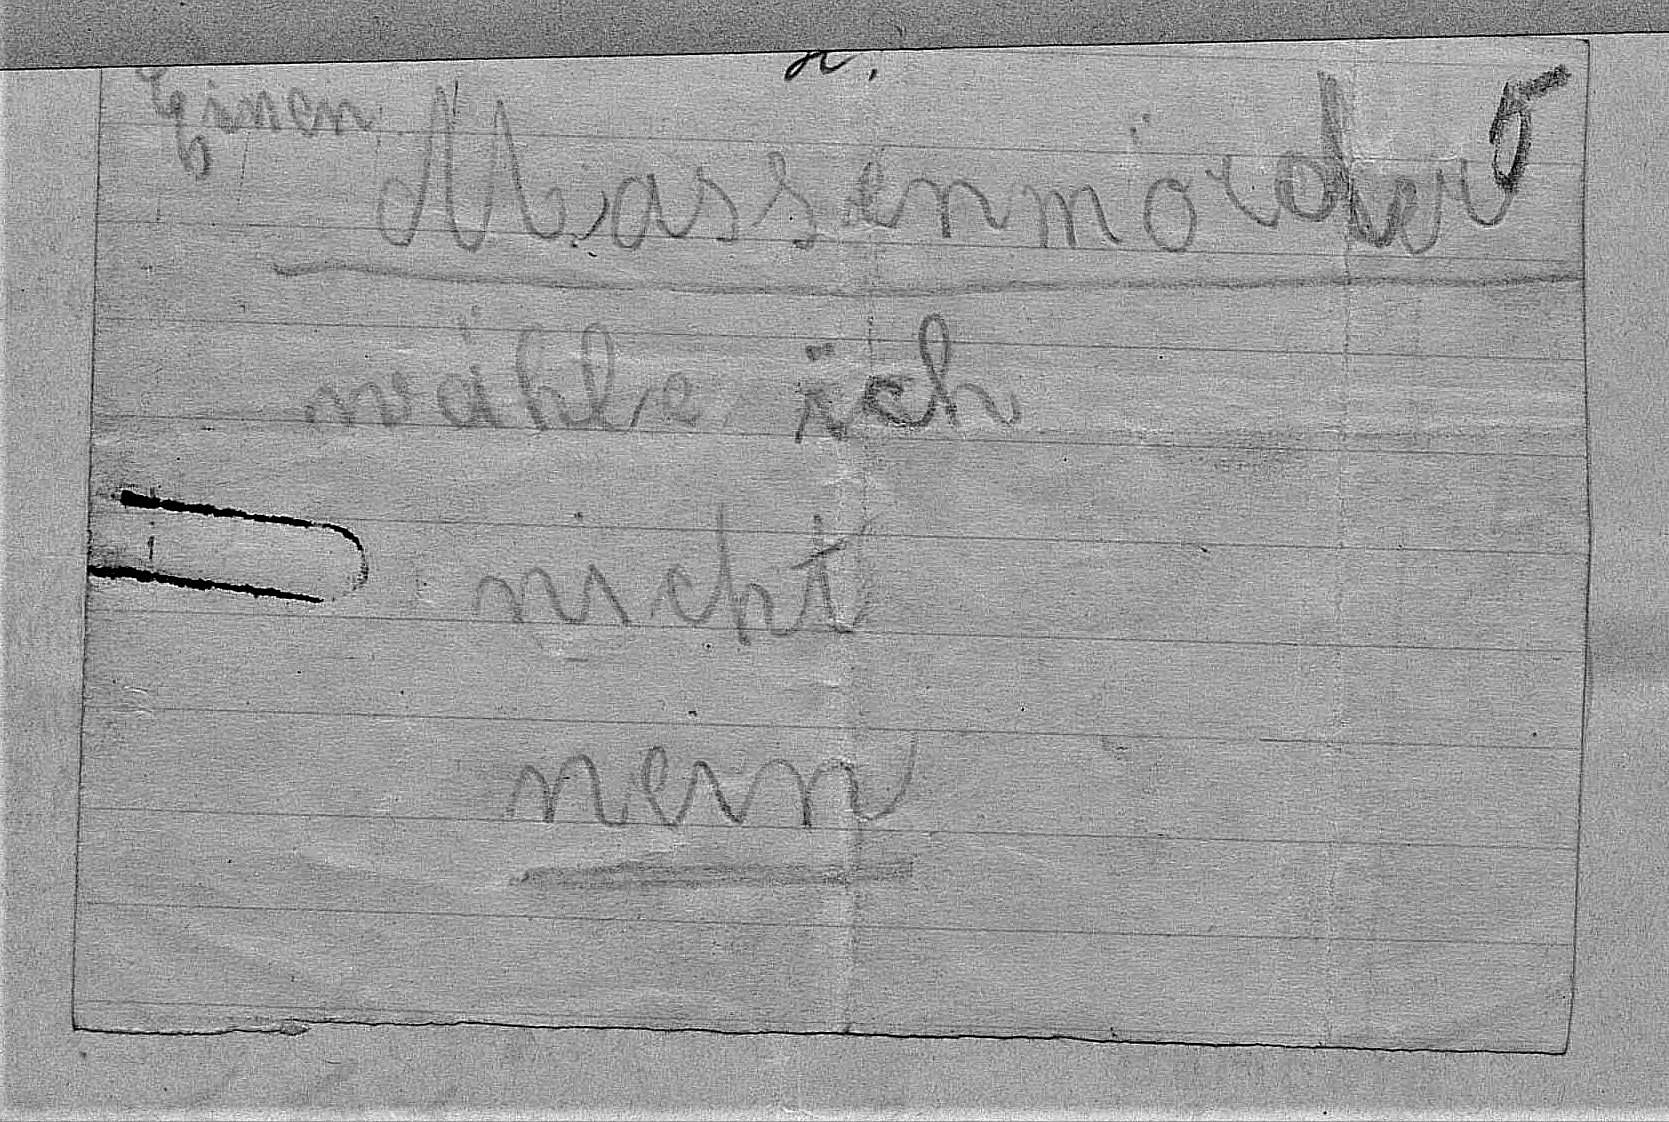 Einen
Massenmörder
wähle ich
nicht
nein